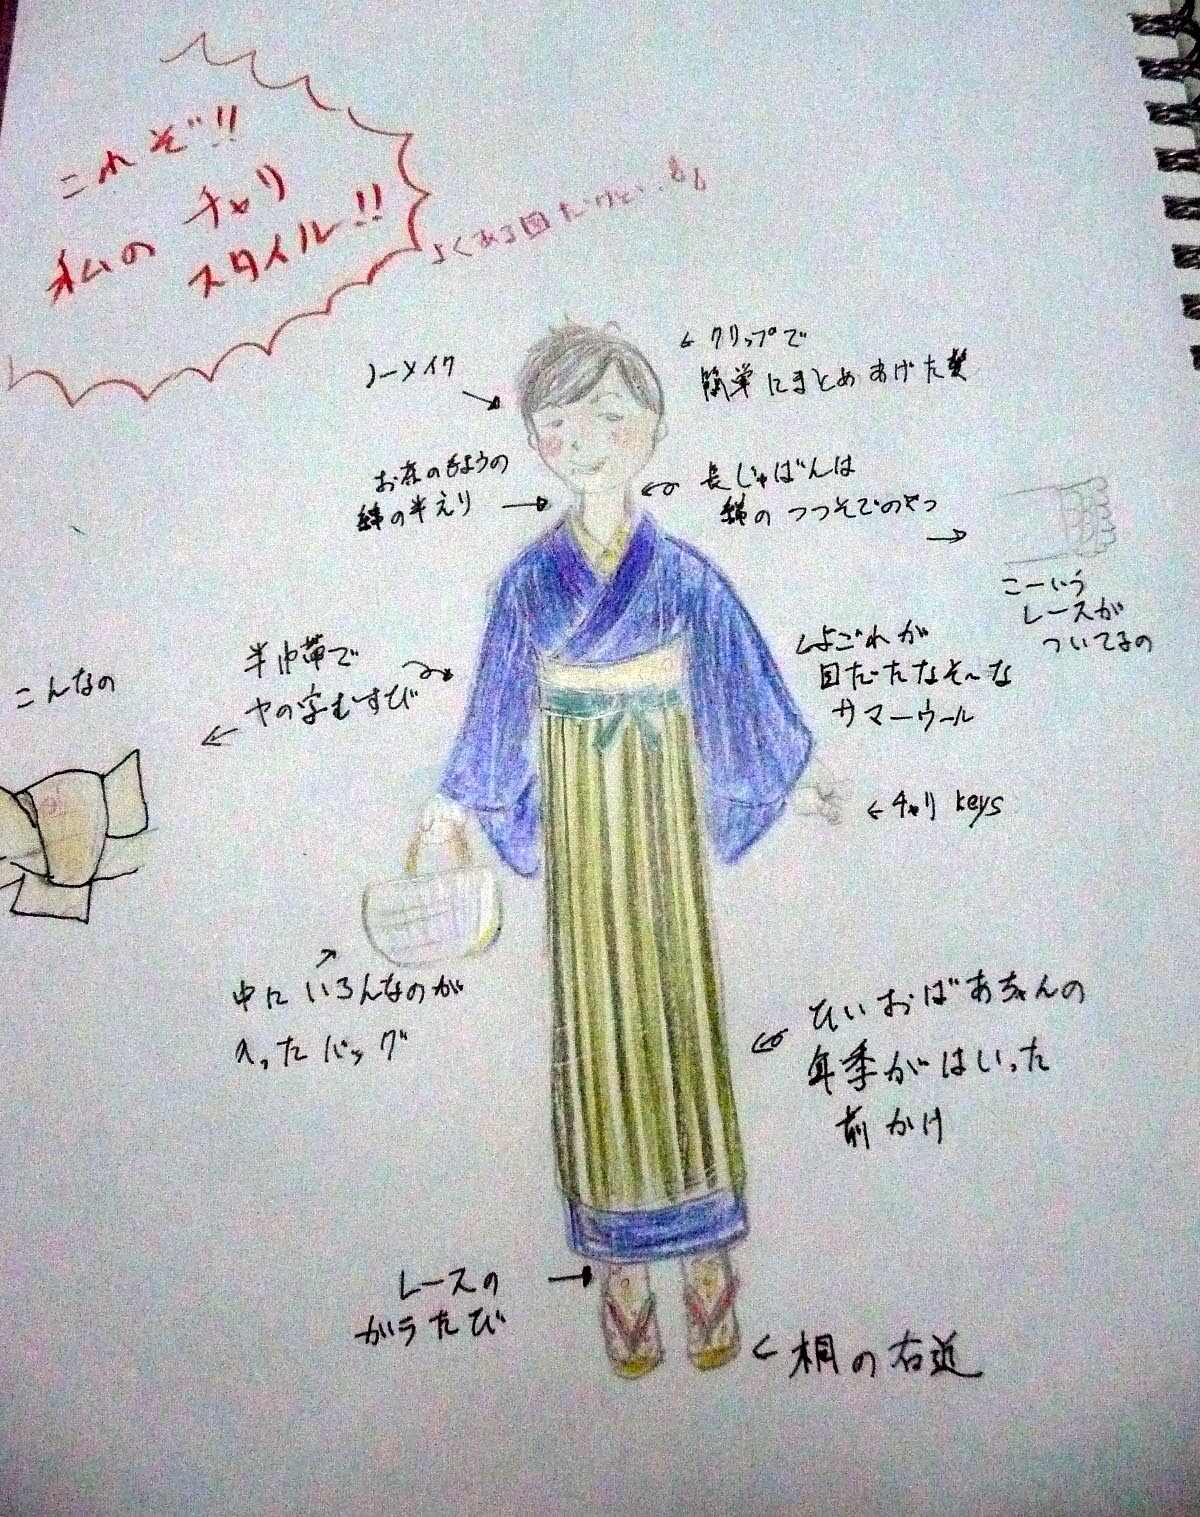 これぞ!!
私の チャリ
スタイル!!
よくある図だけど、、
ノーメイク
クリップで
簡単にまとめあげた髪
お茶のもようの
綿の半えり
長じゅばんは
綿の つつそでのやつ
こーいう
レースが
ついてるの
半巾帯で
ヤの字むすび
こんなの
よごれが
目だたなそ〜な
サマーウール
チャリ keys
中に いろんなのが
入ったバッグ
ひいおばあちゃんの
年季がはいった
前かけ
レースの
がラたび
桐の右近